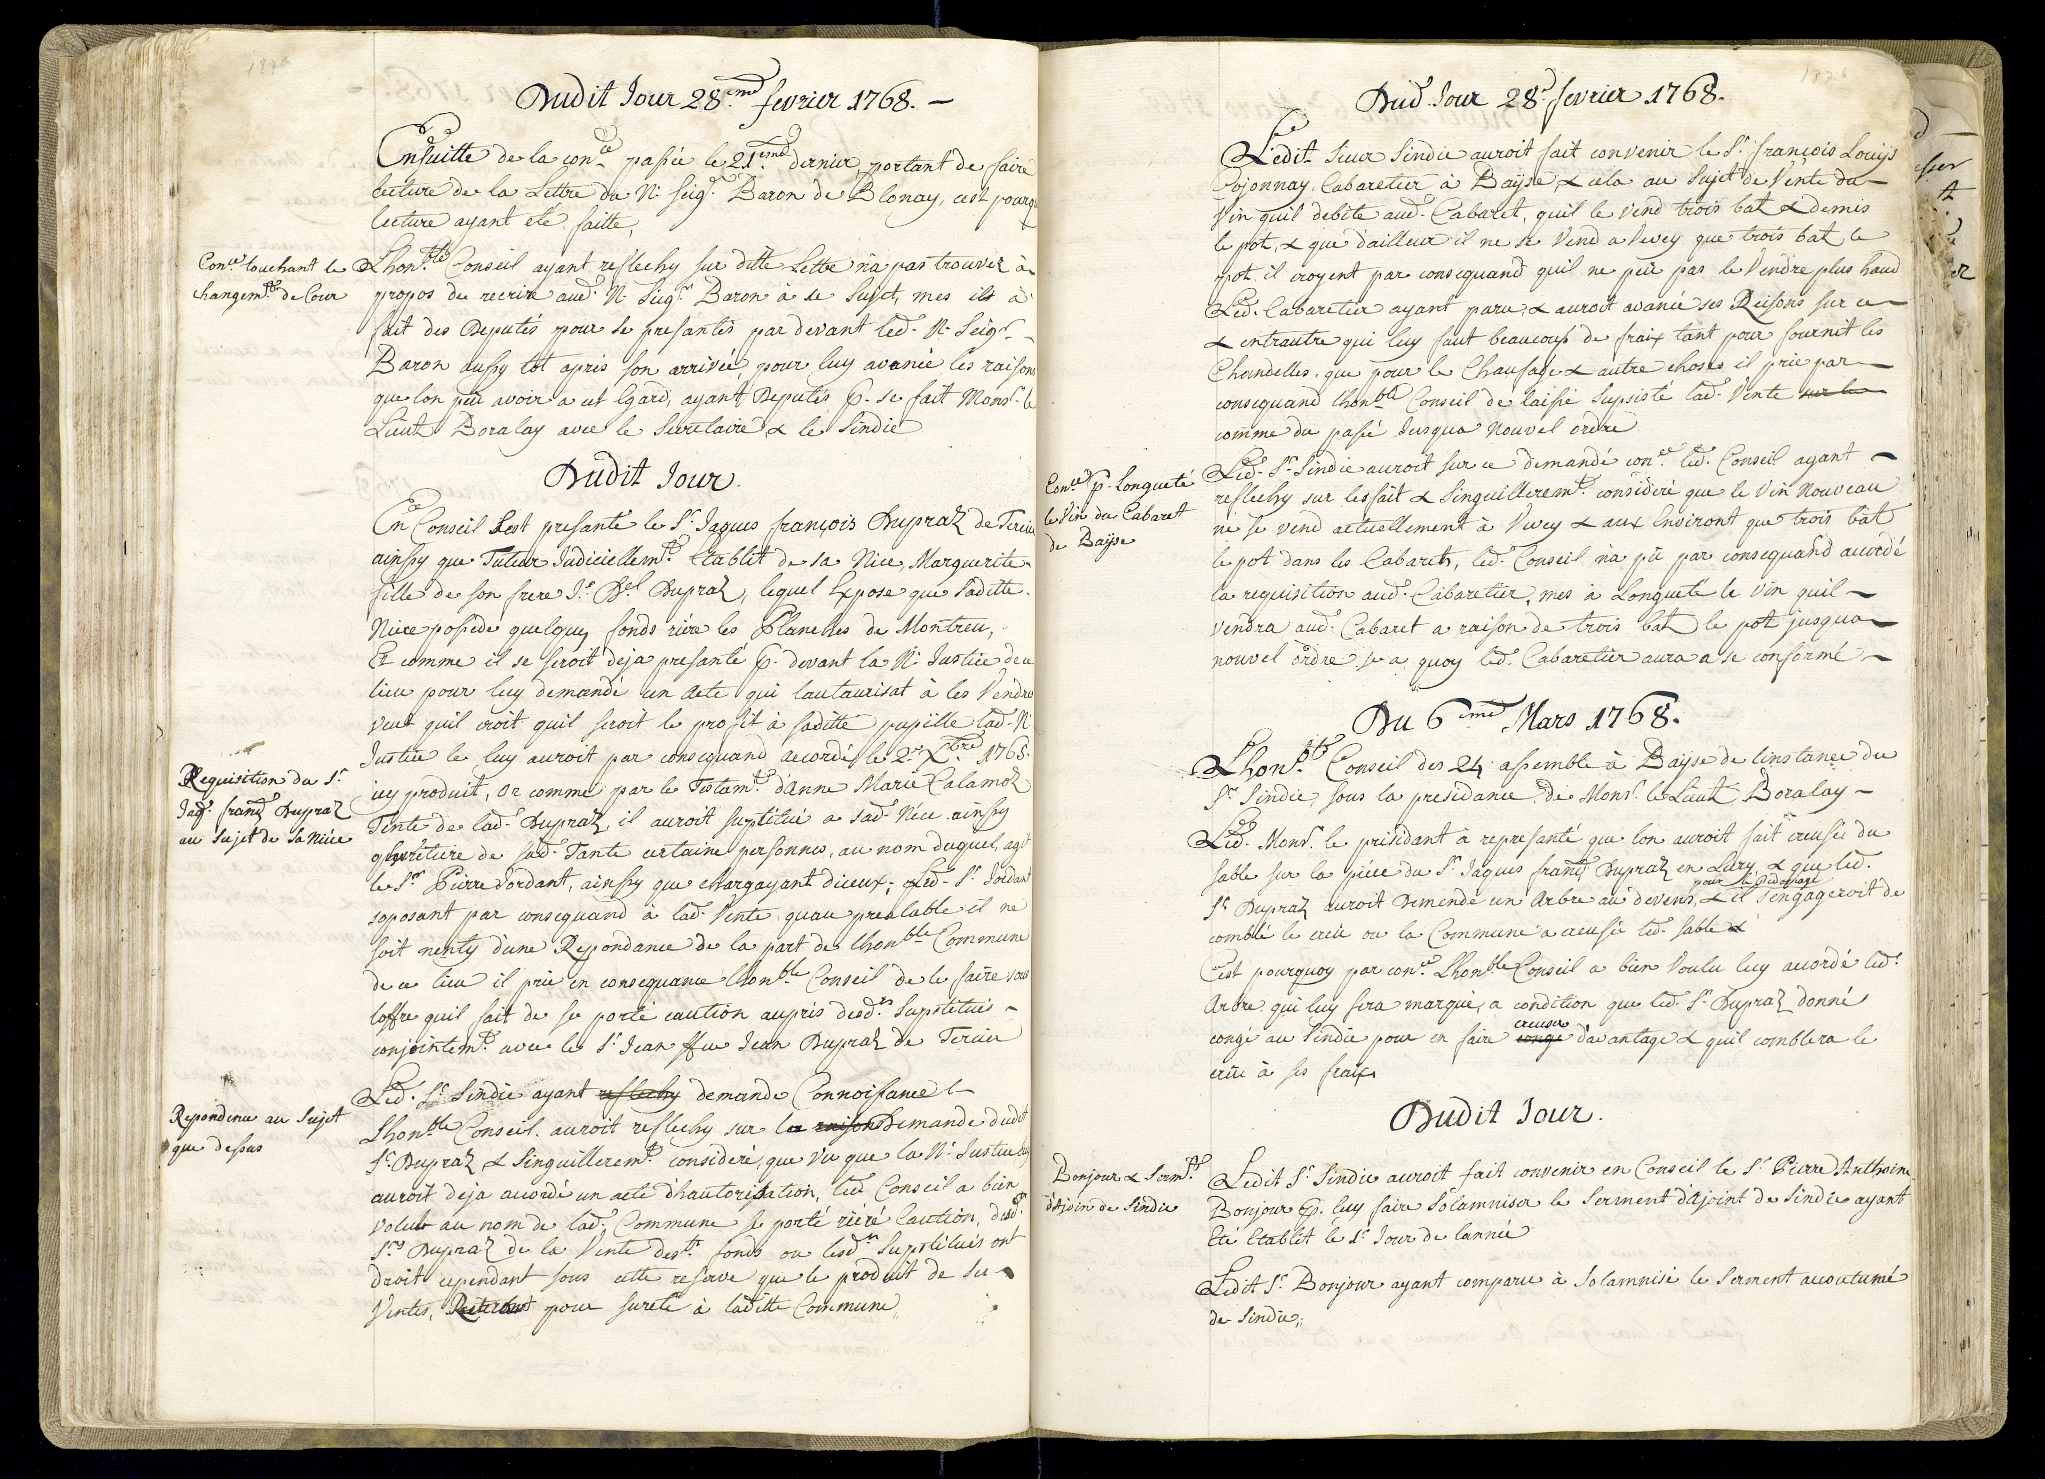 Dudit Jour 28.me fevrier 1768. —
Ensuitte de la con.ce passée le 21.eme dernier, portant de faire
lecture de la Lettre du N. Seig.r Baron de Blonay, cest pourq
lecture ayant eté faitte,
Con.ce touchant le
changem.t de Cour
Lhon.ble Conseil ayant reflechy sur ditte Lettre na pas trouvez à
propos de recrire aud. N. Seig.r Baron à se Sujet, mes ils à
fait des Deputés pour se presantés par devant led. N. Seig.r
Baron aussy tot apres son arrivée, pour luy avancé les raisons
que lon peu avoir a cet Egard, ayant Deputés p. se fait Mons.r le
Lieut Boralay avec le Secretaire & le Sindic
Dudit Jour.
En Conseil Sest presanté le S.r Jaques françois Dupraz de Tercier
ainssy que Tuteur Judiciellem.t Etablit de sa Niece, Marguerite
fille de son frere J.n D.el Dupraz, lequel Expose que saditte
Niece possede quelques fonds riere les Planches de Montreu,
Et comme il se seroit deja presanté p. devant la N. Justice de ce
lieu pour luy demandé un Acte qui lautaurisat à les Vendre
veut quil croit quil seroit le profit à saditte pupille lad. N
Justice le luy auroit par consequand acordé le 2.e X.bre 1765.
Requisition du S.r
Jaq. franç. Dupraz
au Sujet de Sa Niéce
icy produit, Or comme par le Testam.t d'Anne Marie Calamoz
Tente de lad. Dupraz, il auroit suptitué a sad. Niéce ainssy
quheretiere de sad. Tante certaine personnes, au nom duquel, agit
le S.r Pierre Dordant, ainssy que chargayant diceux; Led. S.r Jordant
soposant par consequand à lad. Vente quau prealable il ne
soit nenty d'une Repondance de la part de lhon.ble Commune
de ce lieu il prie en consequance lhon.ble Conseil de le faire vous
loffre quil fait de se porté caution aupres desd.ts Suptitués
conjointem.t avec le S.r Jean ffeu Jean Dupraz de Tercier
Led. S.r Sindic ayant reflechy demandé Connoissance
Repondence au Sujet
que dessus
Lhon.ble Conseil auroit reflechy sur la raison Demande dudit
S.r Dupraz & Singuillerem.t consideré, que Vu que la N. Justice luy
auroit deja acordé un acte d'hautorisation, led. Conseil a bien
volut au nom de lad. Commune se porté riéré Caution, desd.
S.rs Dupraz de la Vente des.ts fonds ou lesd.ts Suptitués ont
droit cependant sous cette reserve que le produit de se
Ventes, pour sureté à laditte Commune,,
Dud. Jour 28.e fevrier 1768.
Ledit Sieur Sindic auroit fait convenir le S.r françois Louÿs
Cojonnay Cabaretier à Baÿse & cela au Sujet de Vente du
Vin quil debite aud. Cabaret, quil le vend trois bat & demis
le pot, & que d'ailleur il ne se Vend a Vevey que trois bat le
pot, il croyent par consequand quil ne peu pas le Vendre plus haud
Led. Cabaretier ayant paru, & auroit avancé ses Reisons sur ce
& entrautre qui luy faut beaucoup de fraix tant pour fournit les
Chandelles, que pour le Chaufage & autre choses il prie par
consequand lhon.ble Conseil de laissé Supsisté lad. Vente sur le
comme du passé Jusqua Nouvel ordre
Con.ce p. Longueté
le Vin du Cabaret
de Baÿse
Led. S.r Sindic auroit sur ce demandé con.ce led. Conseil ayant
reflechy sur les fait & Singuillerem.t consideré que le Vin Nouveau
ne se vend actuellement à Vevey & aux Environt que trois bat
le pot dans les Cabarets, led. Conseil na pû par consequand acordé
la requisition aud. Cabaretier, mes à Longueté le Vin quil
vendra aud. Cabaret a raison de trois bat le pot jusqua
nouvel ordre & a quoy led. Cabaretier aura a se conformé
Du 6.me Mars 1768.
Lhon.ble Conseil des 24 assemblé à Baÿse de linstance du
S.r Sindic, sous la presidance de Mons.r le Lieut Boralay
Led. Mons.r le présidant à represanté que lon auroit fait creusée du
sable sur la piéce du S.r Jaques franç. Dupraz en Lury, & que led.
pour le Dedomage
S.r Dupraz auroit Demendé un Arbre au devens, & il s'engageroit de
comblé le creu ou la Commune a creusée led. sable &
Cest pourquoy par con.ce Lhon.ble Conseil a bien Voulu luy acordé led.
Arbre qui luy sera marqué, a condition que led. S.r Dupraz donné
creuser
congé au Sindic pour en faire congé d'avantage & quil comblera le
creu à ses fraix
Dudit Jour.
Bonjour & Serm.t
d'Ajoin de Sindic
Ledit S.r Sindic auroit fait convenir en Conseil le S.r Pierre Anthoine
Bonjour p. luy faire Solamniser le Serment d'Ajoint de Sindic ayant
Eté Etablit le 1.r Jour de lannée
Ledit S.r Bonjour ayant comparu à Solamnisé le Serment acoutumé
de Sindic,,